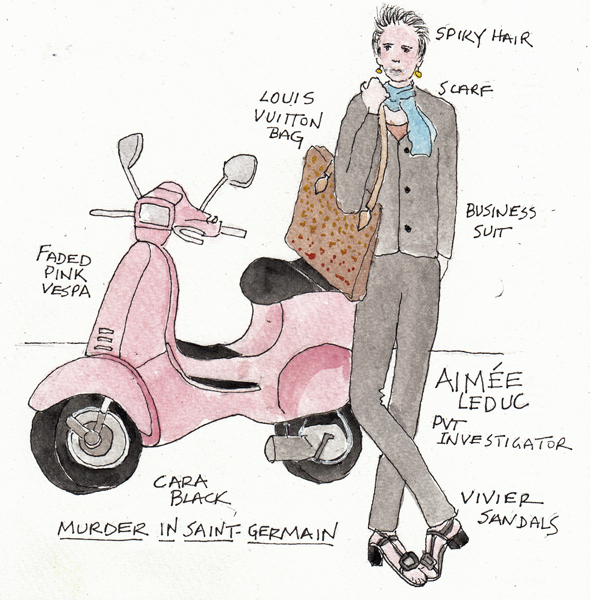 SPIKY HAIR
SCARF
LOUIS
VUITTON
BAG
BUSINESS
SUIT
FADED
PINK
VESPA
AIMÉE
LEDUC
PVT
INVESTIGATOR
CARA
BLACK
MURDER IN SAINT-GERMAIN
VIVIER
SANDALS